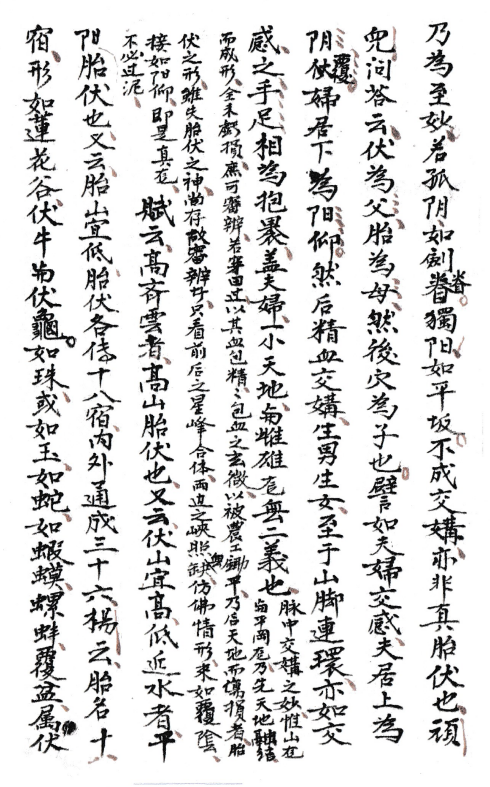 乃為至妙若孤阴如劍脊獨阳如平坂不成交媾亦非真胎伏也頑
皃问答云伏為父胎為母然後穴為子也譬如夫婦交感夫居上為
阴覆伏婦居下為阳仰然后精血交媾生男生女至于山脚連環亦如交
感之手足相為抱褁盖夫婦一小天地与雌雄危無二義也
脉中交媾之妙惟山在
与平罔危乃先天地融结
而成形全未虧損庶可審辨若穿田过以其血包精精包血之玄微以被農工鋤平乃后天地而傷損者胎
伏之形雖失胎伏之神尚存故審辨止只看前后之星峰合体两边之峽照無缺仿佛情形来如覆陰
接如阳仰即是真在
不必过泥
賦云高齐雲者高山胎伏也又云伏山宜高低近水者平
阳胎伏也又云胎山宜低胎伏各俻十八宿内外通成三十六楊云胎名十
宿形如蓮花谷伏牛与伏龜如珠或如玉如蛇如蝦蟆螺蚌覆盆属伏